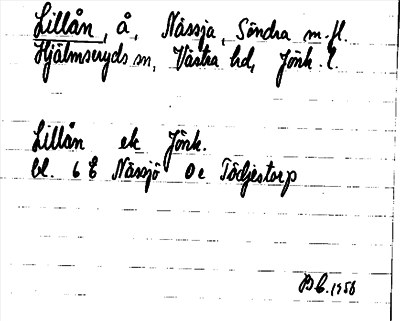 Lillån, å, Nässja, Söndra m.fl.
Hjälmseryds sn, Västra hd, Jönk. l.
Lillån ek Jönk.
bl. 6 E Nässjö 0e Tödjestorp
B C. 1956